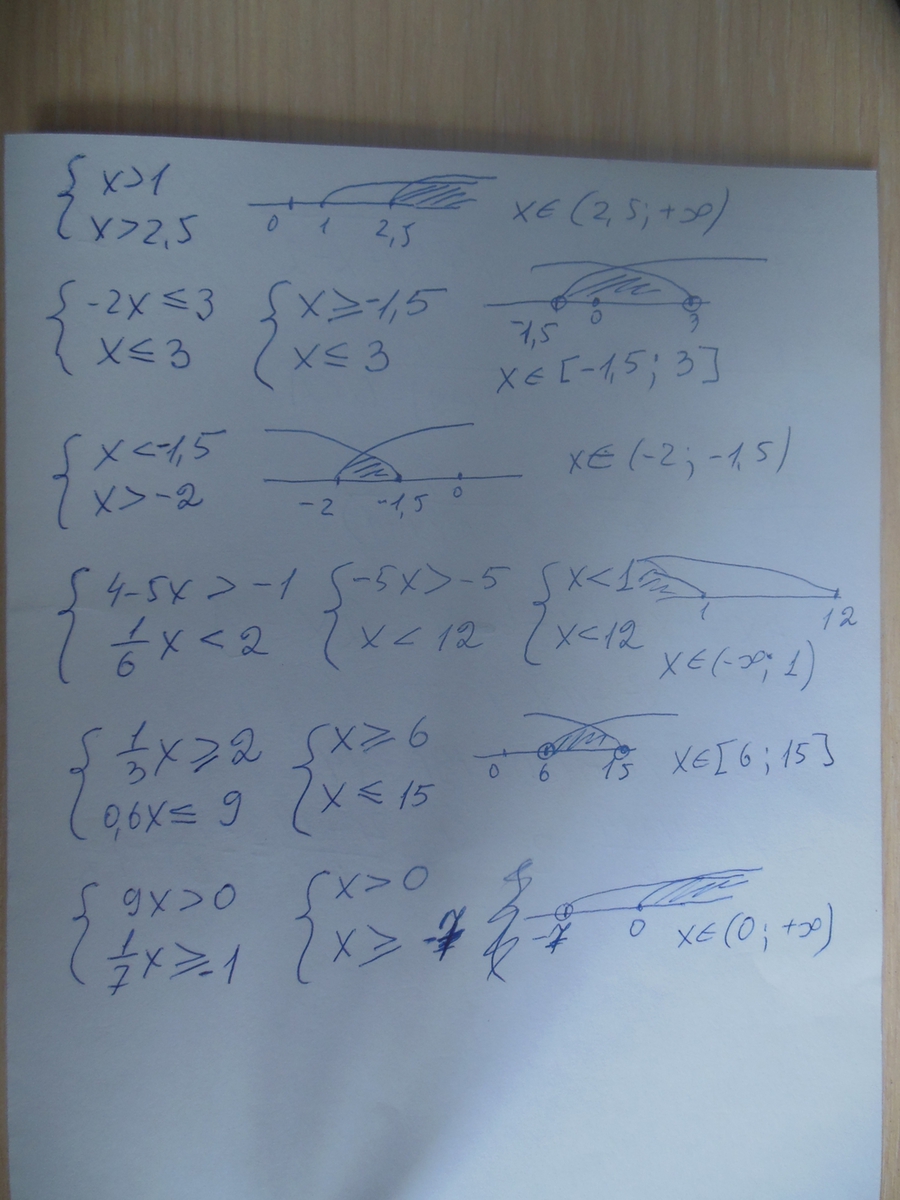 { x>1
x>2,5
0 1 2,5
x∈(2,5;+∞)
{ -2x≤3
x≤3
{ x≥-1,5
x≤3
-1,5 0 3
x∈[-1,5;3]
{ x<-1,5
x>-2
-2 -1,5 0
x∈(-2;-1,5)
{ 4-5x>-1
1/6 x<2
{ -5x>-5
x<12
{ x<1
x<12
1 12
x∈(-∞;1)
{ 1/3 x≥2
0,6x≤9
{ x≥6
x≤15
0 6 15
x∈[6;15]
{ 9x>0
1/7 x≥-1
{ x>0
x≥-7
-7 0
x∈(0;+∞)